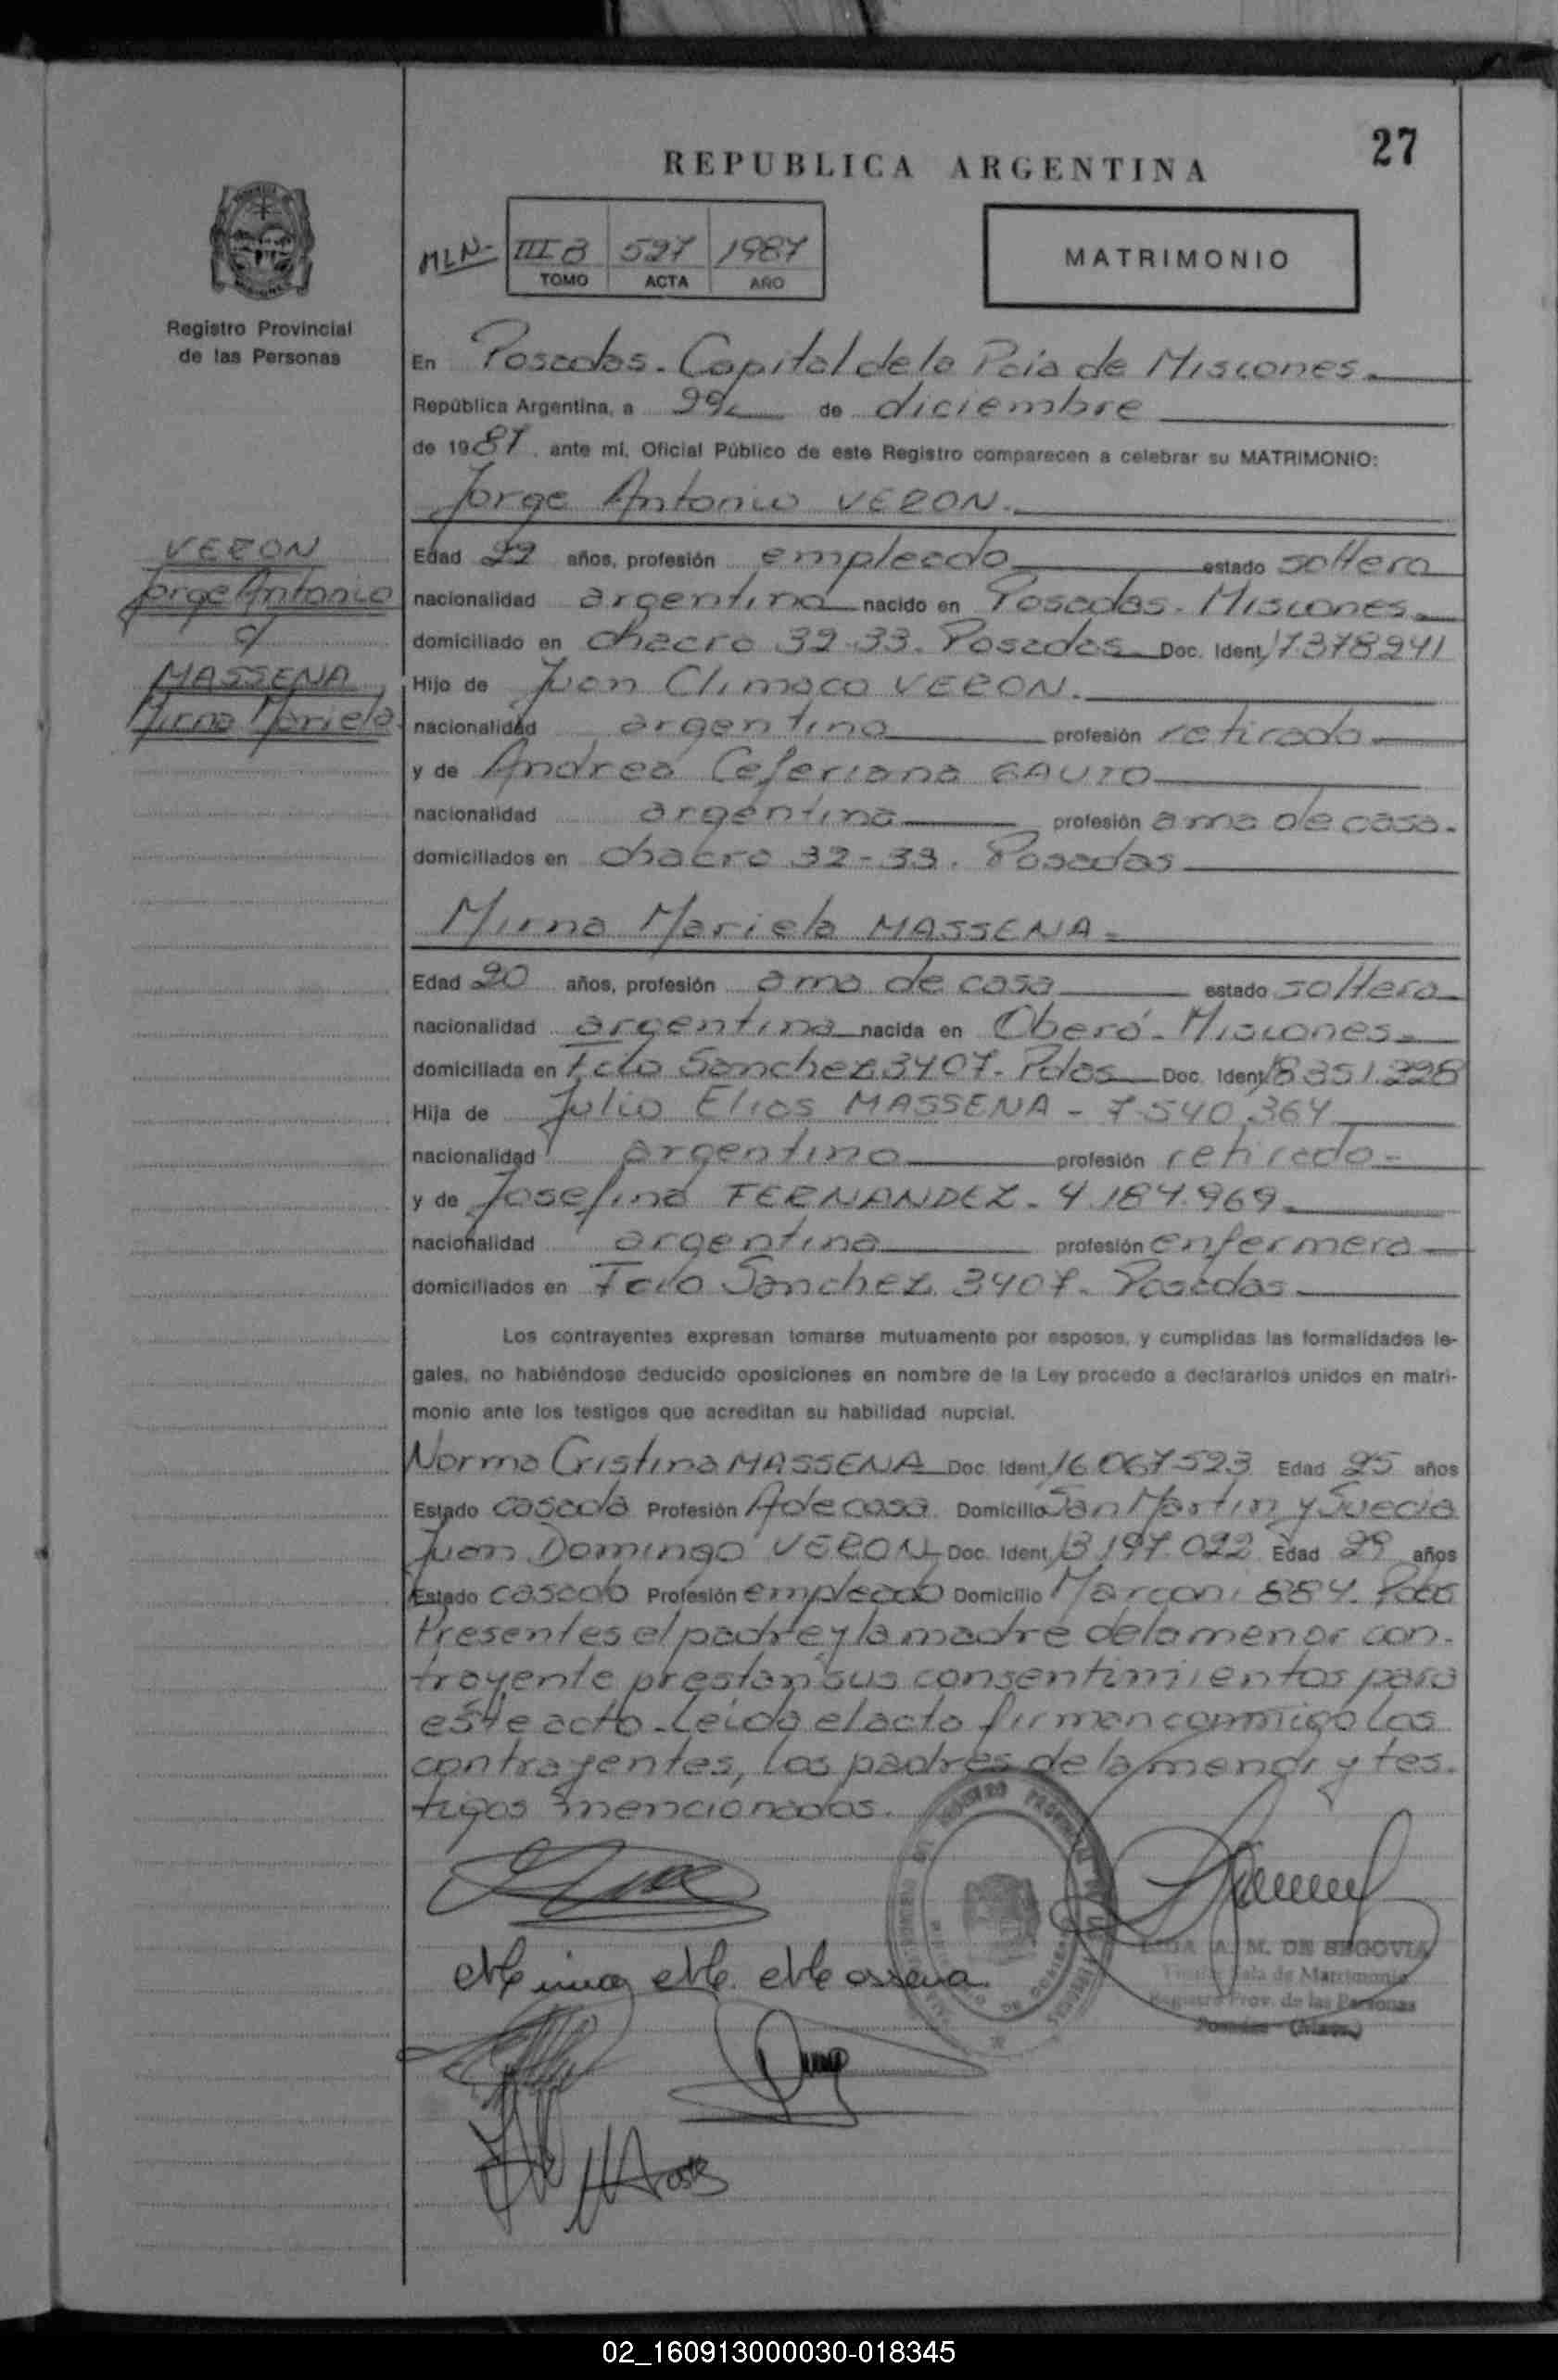 27
REPUBLICA ARGENTINA
MLN- III B 527 1987
TOMO ACTA AÑO
MATRIMONIO
Registro Provincial
de las Personas
En Posadas. Capital de la Pcia de Misiones.
República Argentina, a 22 de diciembre
de 1987, ante mí, Oficial Público de este Registro comparecen a celebrar su MATRIMONIO:
Jorge Antonio VERON.
VERON
Jorge Antonio
c/
MASSENA
Mirna Mariela
Edad 22 años, profesión empleado estado soltero
nacionalidad argentino nacido en Posadas. Misiones.
domiciliado en chacra 32-33. Posadas Doc. Ident. 17.378.241
Hijo de Juan Climaco VERON.
nacionalidad argentino profesión retirado
y de Andrea Ceferiana GAUTO
nacionalidad argentina profesión ama de casa.
domiciliados en chacra 32-33. Posadas
Mirna Mariela MASSENA
Edad 20 años, profesión ama de casa estado soltera
nacionalidad argentina nacida en Oberá. Misiones
domiciliada en Fcio Sanchez 3407. Pdas Doc. Ident. 18.351.228
Hija de Julio Elias MASSENA - 7.540.364
nacionalidad argentino profesión retirado
y de Josefina FERNANDEZ - 4.184.969
nacionalidad argentina profesión enfermera
domiciliados en Fcio Sanchez 3407. Posadas
Los contrayentes expresan tomarse mutuamente por esposos, y cumplidas las formalidades le-
gales, no habiéndose deducido oposiciones en nombre de la Ley procedo a declararlos unidos en matri-
monio ante los testigos que acreditan su habilidad nupcial.
Norma Cristina MASSENA Doc. Ident. 16.067.523 Edad 25 años
Estado casada Profesión A de casa Domicilio San Martin y Suecia
Juan Domingo VERON Doc. Ident. 13.197.022 Edad 29 años
Estado casado Profesión empleado Domicilio Marconi 884. Pdas
Presentes el padre y la madre de la menor con-
trayente prestan sus consentimientos para
este acto. Leida el acta firman conmigo los
contrayentes, los padres de la menor y tes-
tigos mencionados.
Mirna M. Massena
A. M. DE SEGOVIA
Sala de Matrimonio
Registro Prov. de las Personas
Posadas - (Mnes.)
02_160913000030-018345